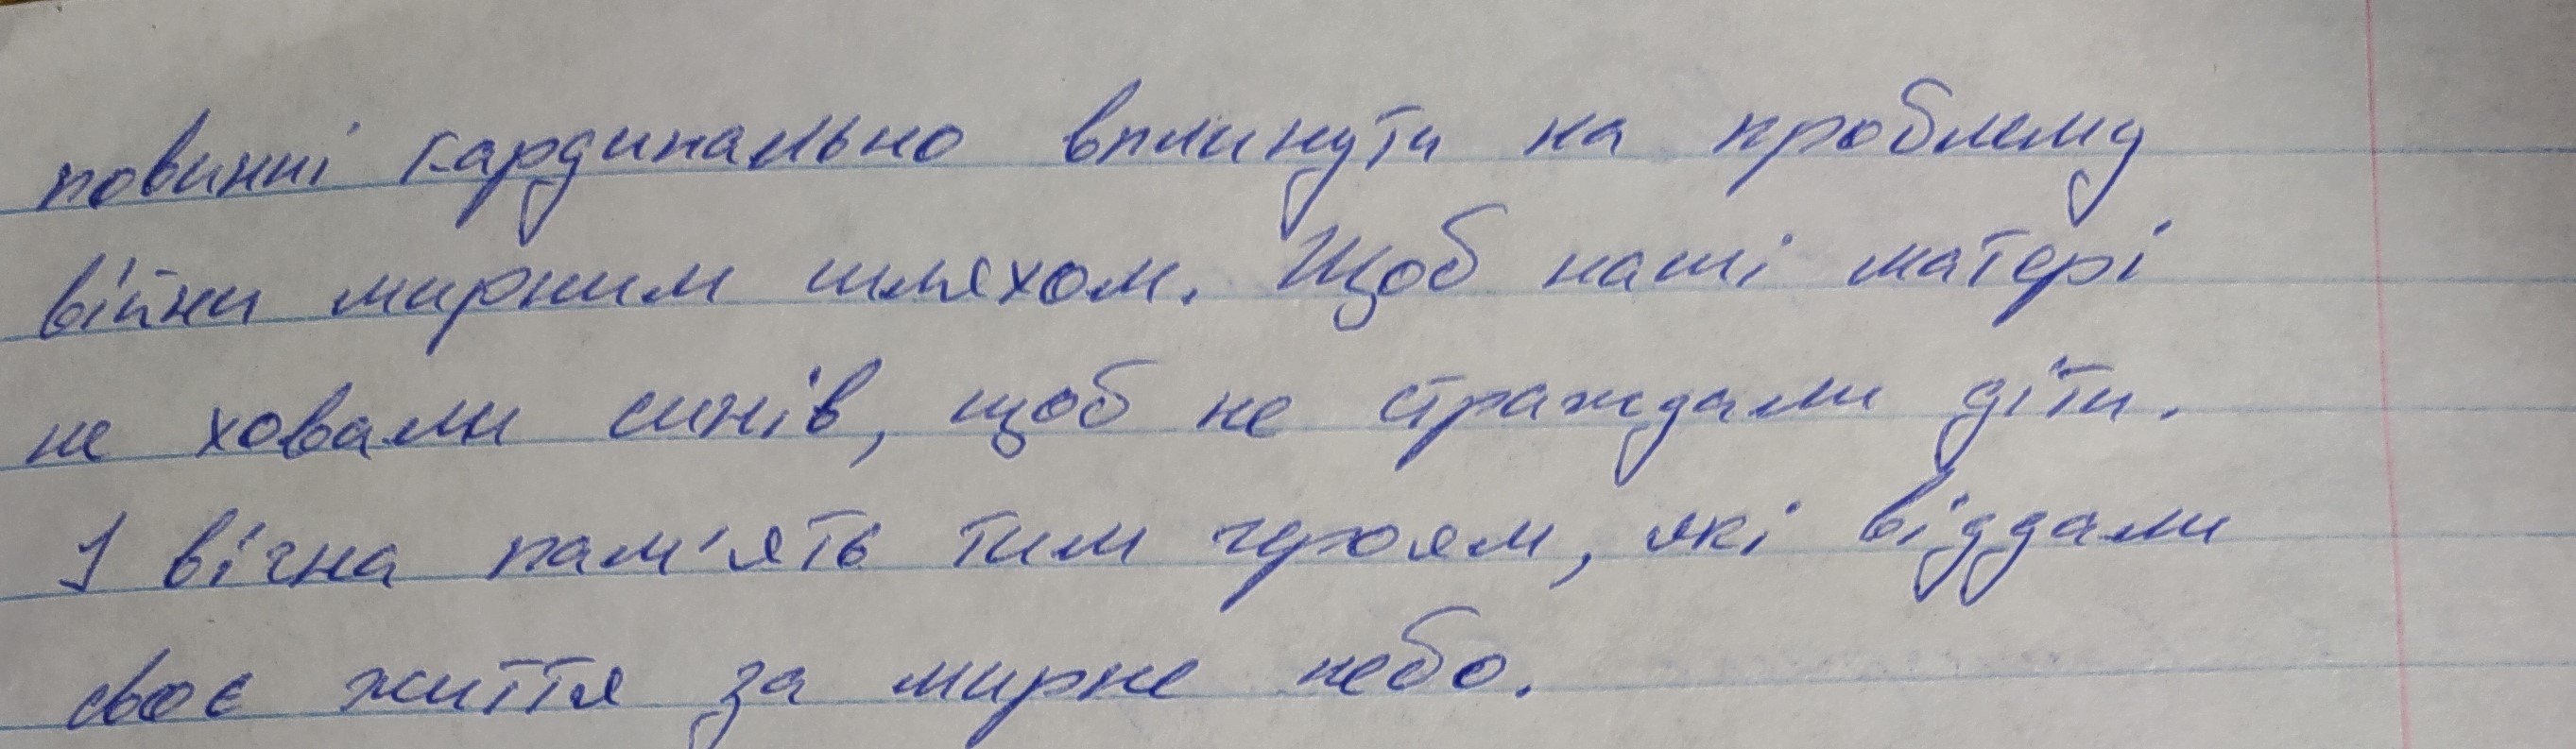 повинні кардинально вплинути на проблему
війни мирним шляхом. Щоб наші матері
не ховали синів, щоб не страждали діти.
І вічна пам'ять тим героям, які віддали
своє життя за мирне небо.